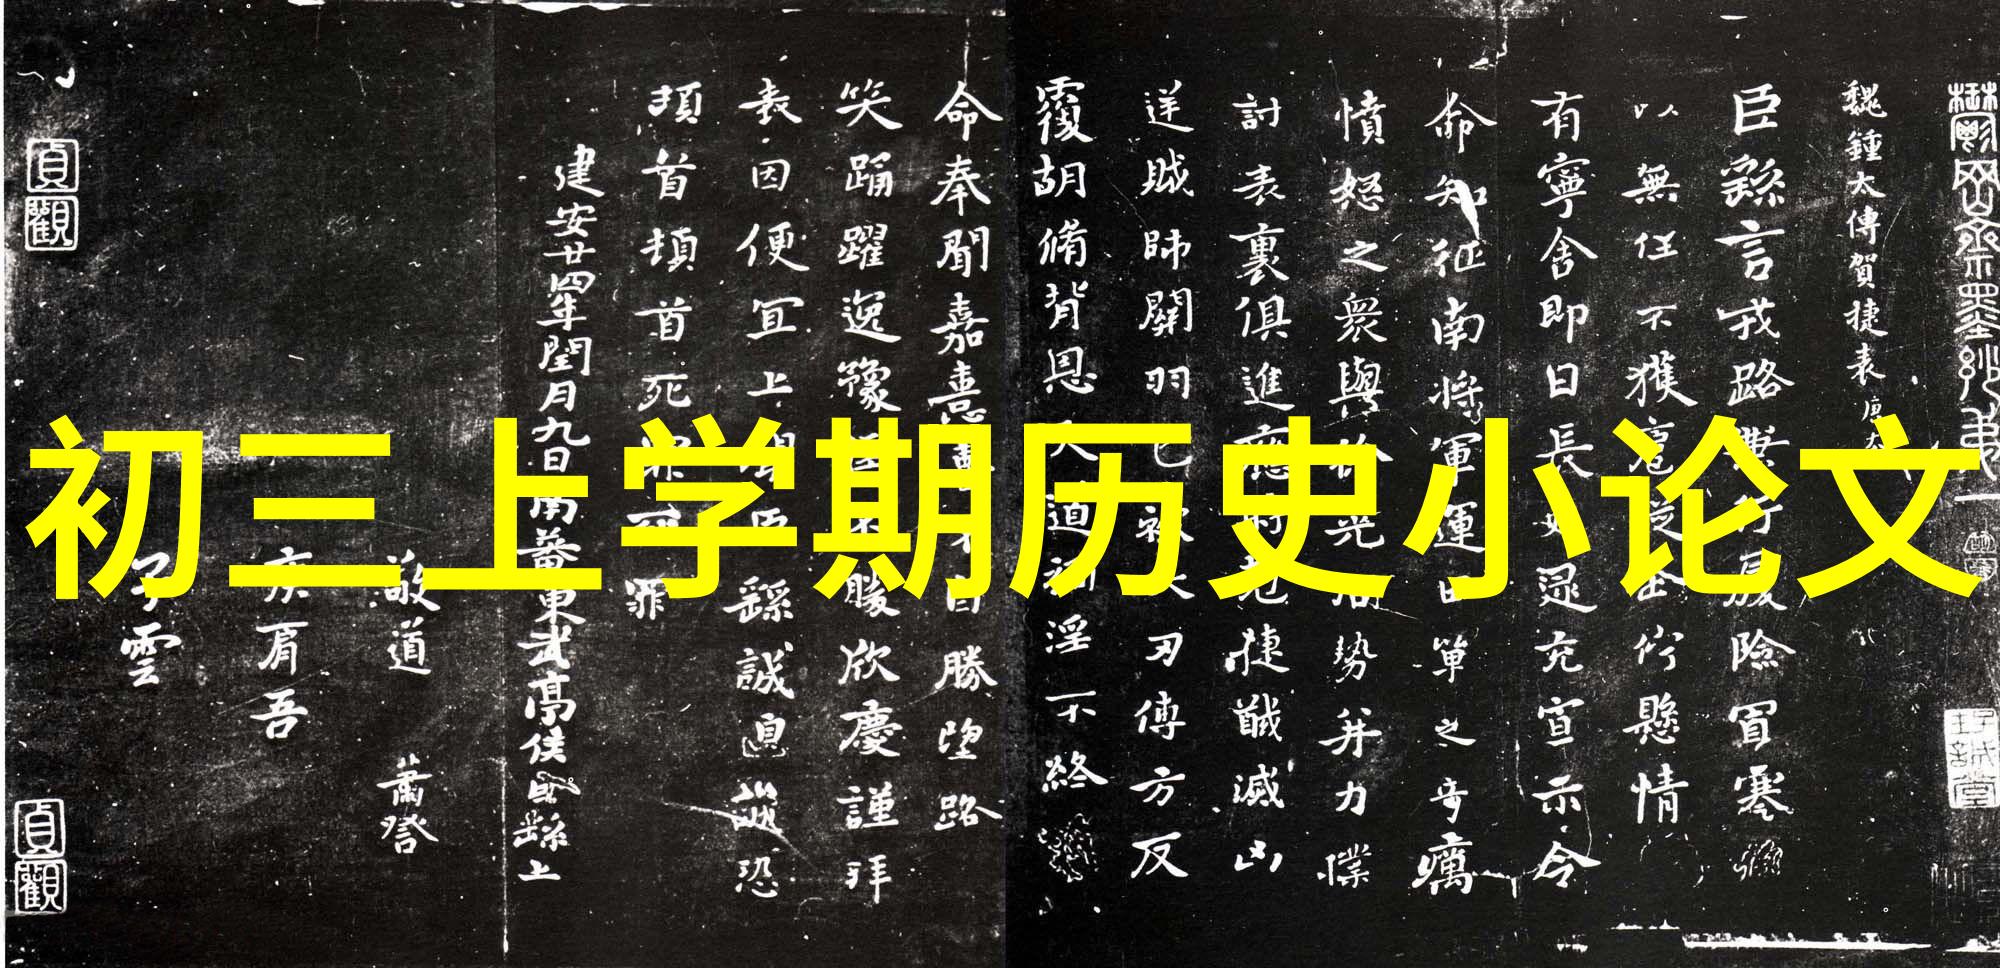 初三上学期历史小论文
鬱岡齋墨妙弟一
魏鍾太傅賀捷表
臣繇言戎路兼行履險冒寒
以無任不獲扈從企佇懸情
有寧舍即日長史逯充宣示令
命知征南將軍運田單之奇厲
憤怒之衆與徐晃同勢并力撲
討表裏俱進應時克捷馘滅凶
逆賊帥關羽已被矢刃傅方反
覆胡脩背恩天道禍淫不終
命奉聞嘉憙喜不自勝望路
笑踊躍逸豫臣不勝欣慶謹拜
表因便宜上聞臣繇誠惶誠恐
頓首頓首死罪死罪
建安廿四年閏月九日南蕃東武亭侯臣繇上
敬道 蕭詧
庾肩吾
子雲
貞觀
貞觀